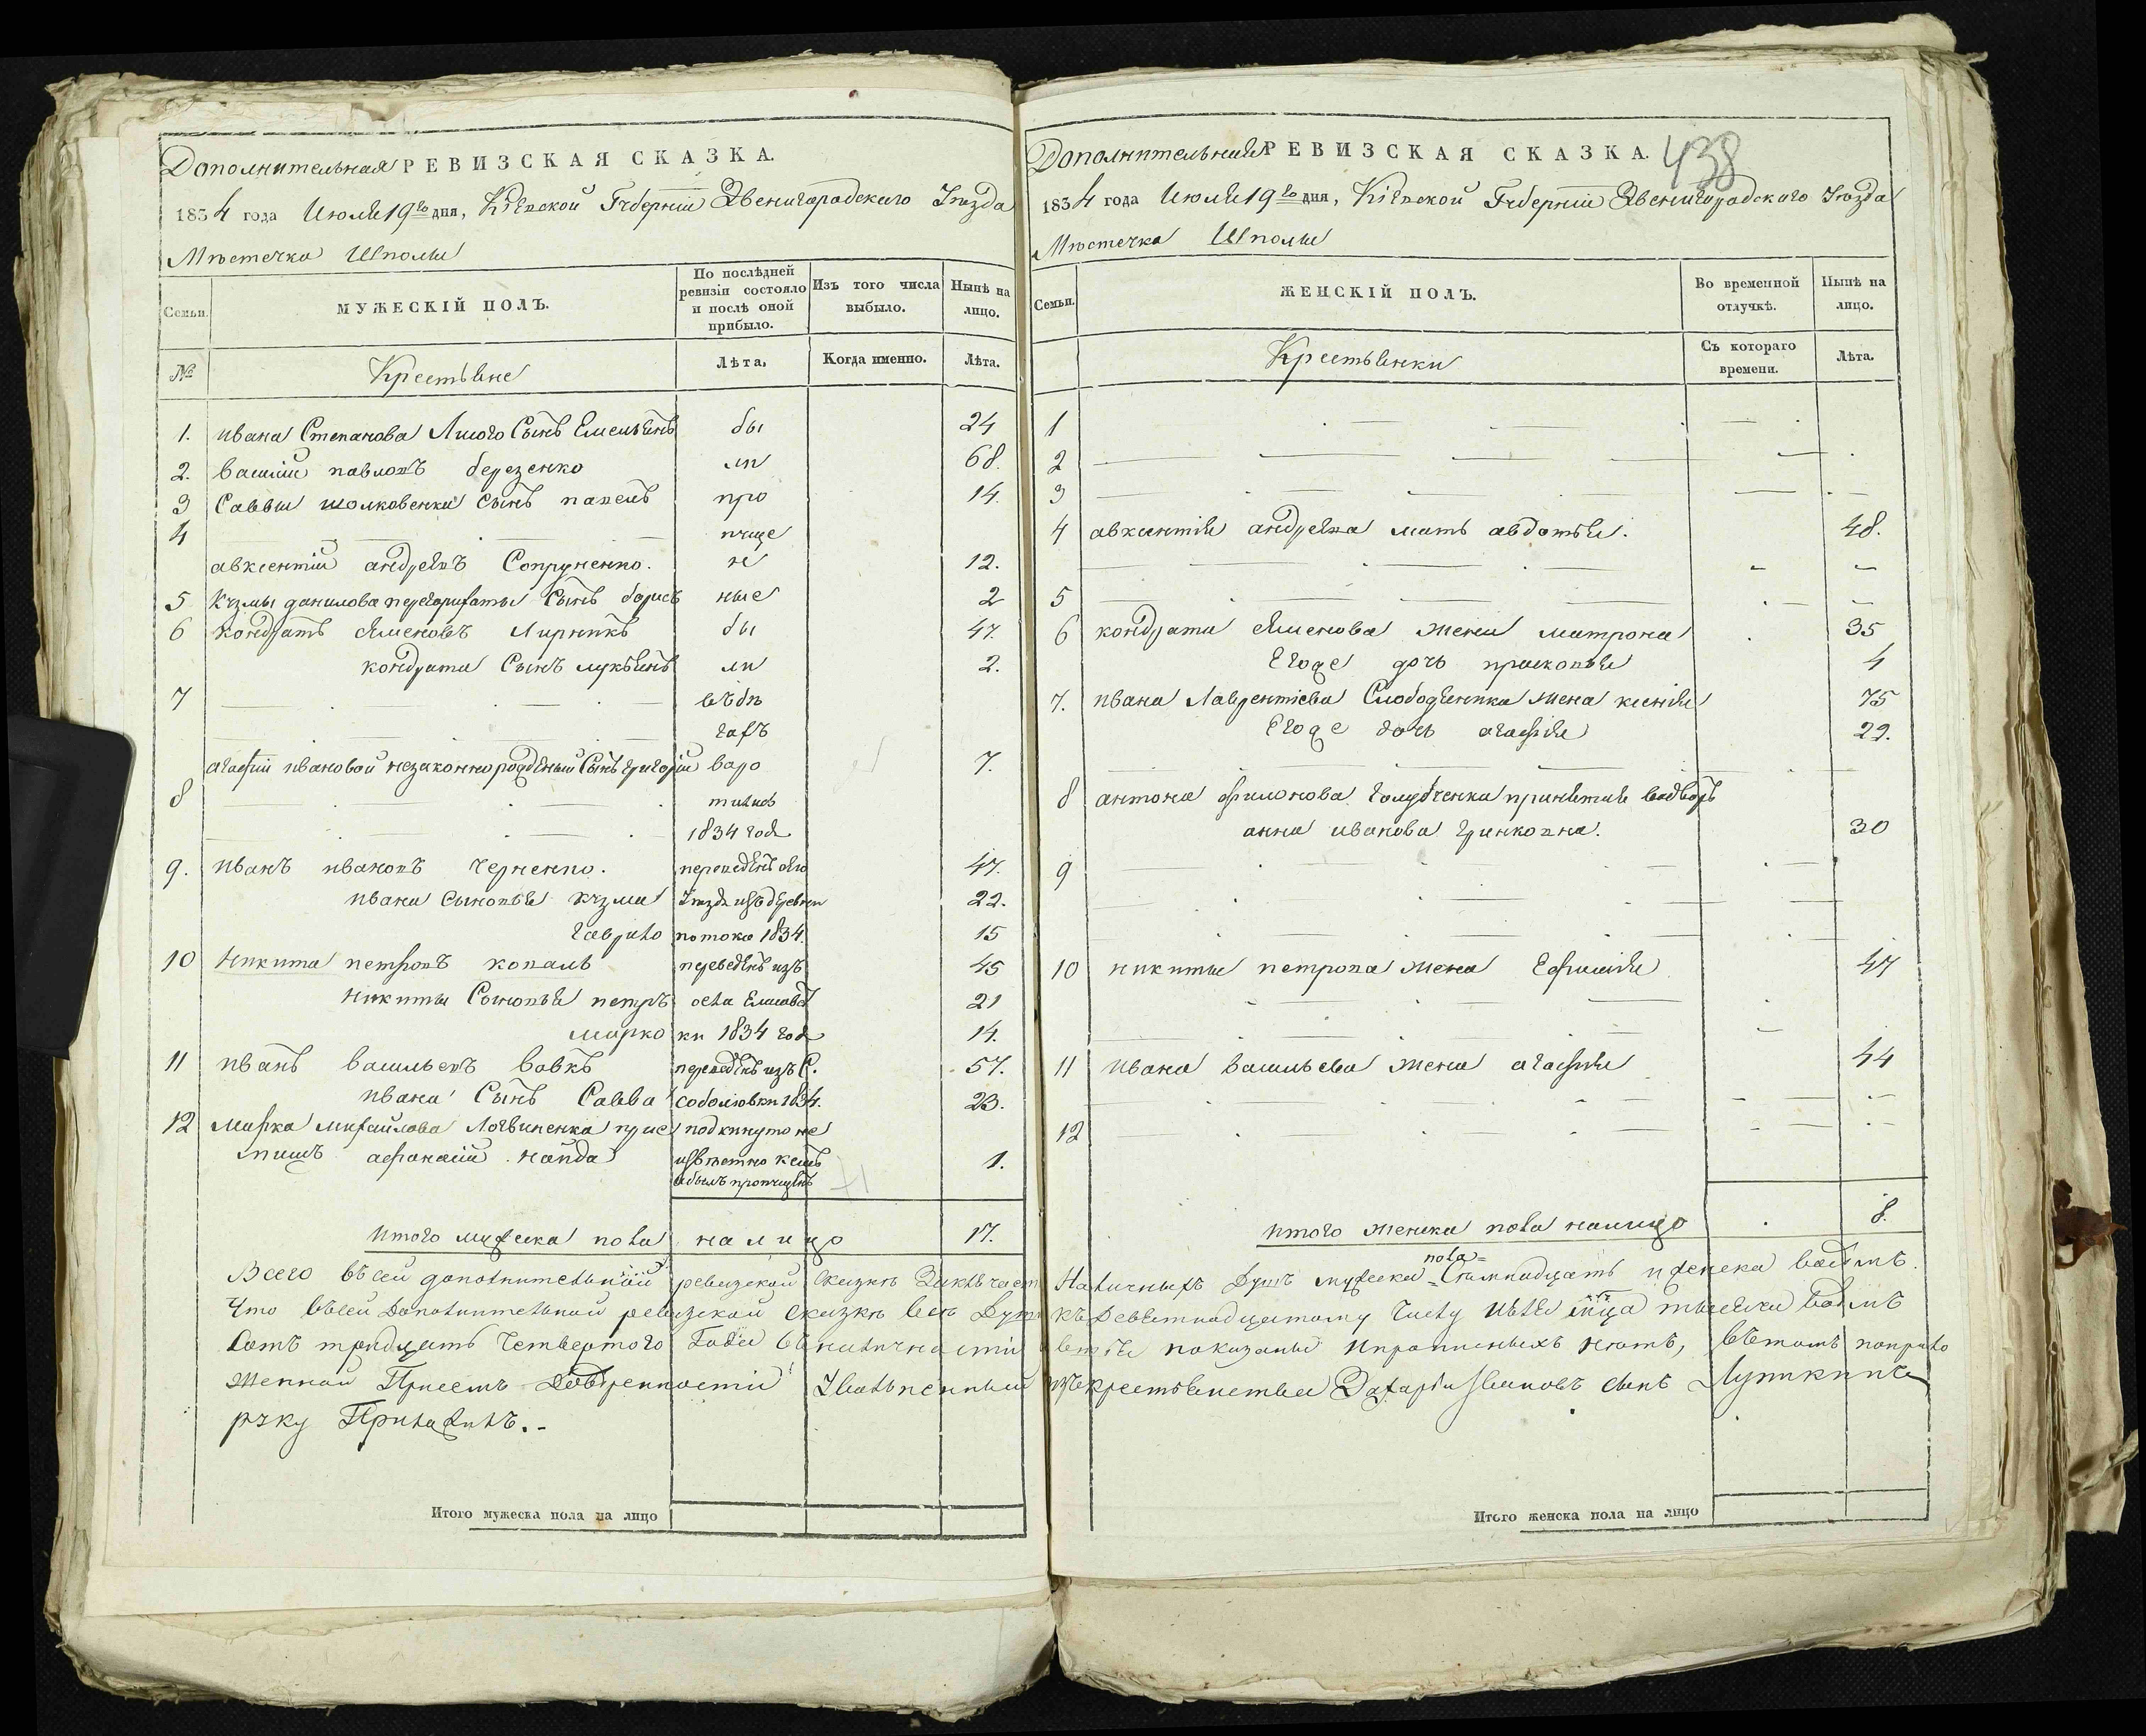 Дополнительная РЕВИЗСКАЯ СКАЗКА.
1834 года Июля 19го дня, Кіевской Губерніи Звенигородского Уѣзда
Мѣстечка Шполы
Семьи.
МУЖЕСКІЙ ПОЛЪ.
По послѣдней ревизіи состояло и послѣ оной прибыло.
Изъ того числа выбыло.
Нынѣ на лицо.
№
Крестьяне
Лѣта.
Когда именно.
Лѣта.
1. ивана Степанова Лисого Сынъ Емельянъ бы 24
2. василій павловъ березенко ли 68.
3 Саввы шолковенка Сынъ павелъ про 14.
4 пуще
авксентій андреевъ Сопруненко. н 12.
5 Кузмы данилова перехрихаты Сынъ борисъ ные 2
6 кондратъ Яменовъ Лирникъ бы 47.
кондрата Сынъ лукьянъ ли 2.
7 въ бѣ
гахъ
агафіи ивановой незаконнорожденый Сынъ григорій воро 7.
8
1834 года
9. иванъ ивановъ черненко. переведенъ 47.
ивана Сыновья кузма Уѣзда изъ деревни 22.
гаврило потока 1834. 15
10 Никита петровъ коваль переведенъ изъ 45
Никиты Сыновья петръ села Елисавет 21
марко ки 1834 года 14.
11 иванъ васильевъ вовкъ переведенъ изъ С. 57.
ивана Сынъ Савва соболювки 1834. 23.
12 Марка михайлова Логвиненка прие подкинуто не
мишъ афанасій найда извѣстно кемъ 1.
и былъ пропущенъ
итого мужеска пола на лицо 17.
Итого мужеска пола на лицо
Дополнительная РЕВИЗСКАЯ СКАЗКА.
438
1834 года Июля 19го дня, Кіевской Губерніи Звенигородского Уѣзда
Мѣстечка Шполы
Семьи.
ЖЕНСКІЙ ПОЛЪ.
Во временной отлучкѣ.
Нынѣ на лицо.
Крестьянки
Съ котораго времени.
Лѣта.
1
2
3
4 авксентія андреева мать авдотья. 48.
5
6 кондрата Яменова жена матрона 35
Егоже дочь прасковья 4
7. ивана Лаврентіева Слободяника жена ксенія 75
Егоже дочь агафія 29.
8 антона филонова голубченка принятая вовдворъ
анна иванова гринковна. 30
9
10 никиты петрова жена Ефимія 47
11 ивана васильева жена агафия 44
12
итого женска пола налицо 8.
Всего въ сей дополнительной ревизской Сказкѣ Заключает Наличныхъ Душъ мужеска пола Семнадцать и женска восѣмъ.
Что въсей Дополнительной ревизской Сказкѣ всѣ Душы къ Девятнадцатому числу июля мца тысяча восѣмъ
Сотъ тридцать Четвертого Года въ наличности показаны и прописныхъ нетъ, въ томъ поприло
женной Присемъ Довѣренности из крестьянства Захарій ивановъ сынъ
руку Приложилъ.
Итого женска пола на лицо